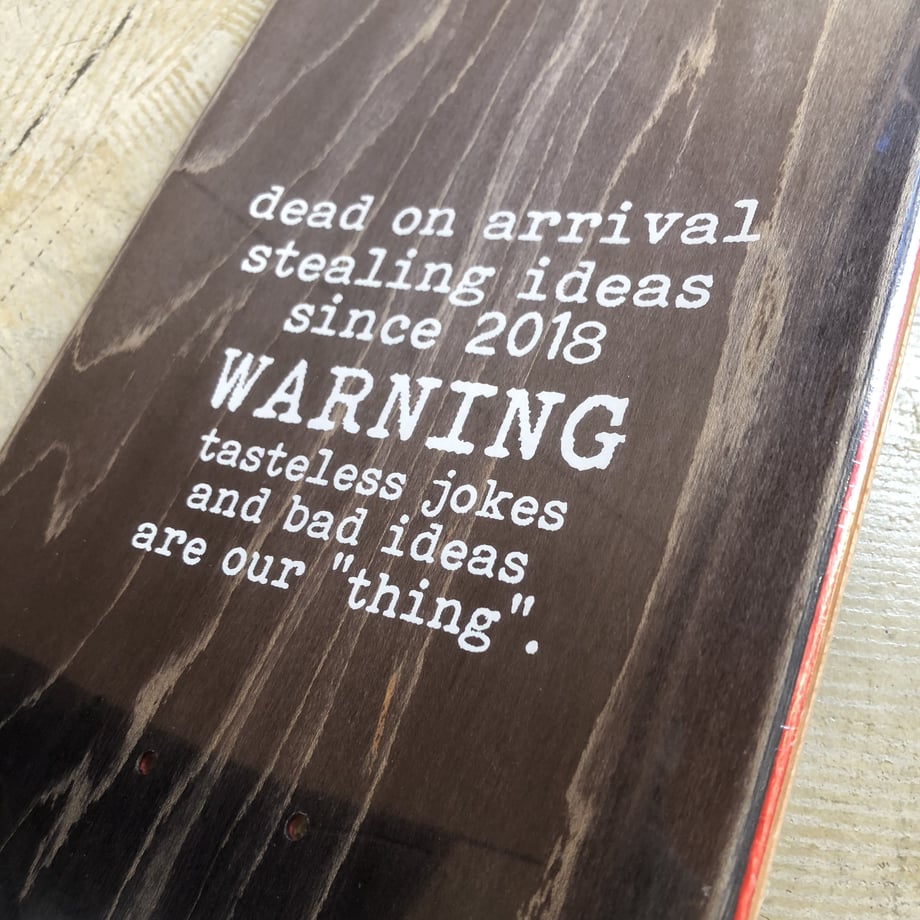 dead on arrival
stealing ideas
since 2018
WARNING
tasteless jokes
and bad ideas
are our "thing".